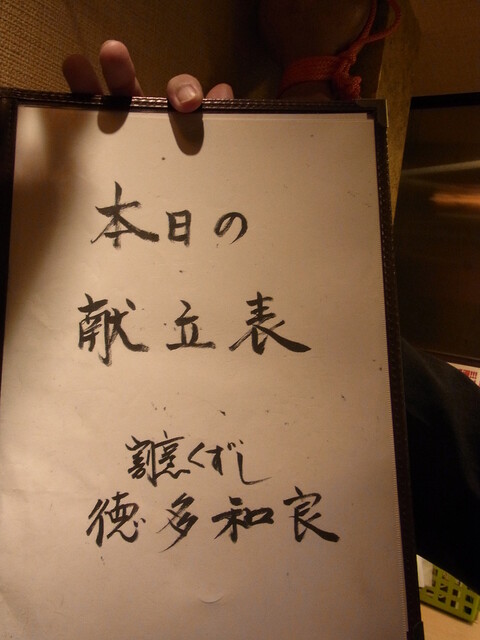 本日の
献立表
割烹くずし
徳多和良